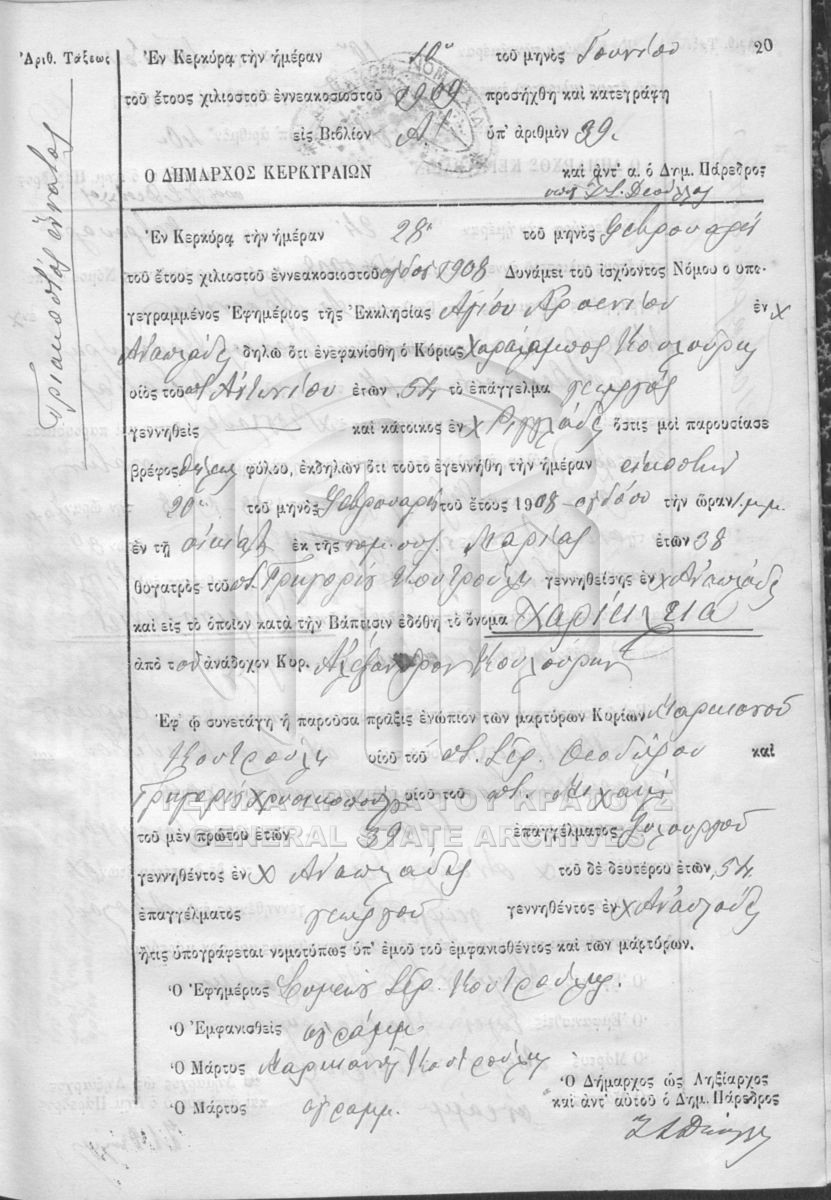 20
Ἀριθ. Τάξεως
Τριακοστὸς ἔννατος
Ἐν Κερκύρᾳ τὴν ἡμέραν 10ην τοῦ μηνὸς Ἰουνίου
τοῦ ἔτους χιλιοστοῦ ἐννεακοσιοστοῦ 1909 προσήχθη καὶ κατεγράφη
εἰς Βιβλίον Α. ὑπ' ἀριθμὸν 39.
Ο ΔΗΜΑΡΧΟΣ ΚΕΡΚΥΡΑΙΩΝ καὶ ἀντ' α. ὁ Δημ. Πάρεδρος
Ἐν Κερκύρᾳ τὴν ἡμέραν 28η τοῦ μηνὸς Φεβρουαρίου
τοῦ ἔτους χιλιοστοῦ ἐννεακοσιοστοῦ ὀγδόου 1908 Δυνάμει τοῦ ἰσχύοντος Νόμου ο υπο-
γεγραμμένος Ἐφημέριος τῆς Ἐκκλησίας Ἁγίου Ἀρσενίου ἐν χ
Ἀναπλάδες δηλῶ ὅτι ἐνεφανίσθη ὁ Κύριος Χαράλαμπος Κουλούρης
υἱὸς τοῦ ποτ. Ἀντωνίου ἐτῶν 54 τὸ ἐπάγγελμα γεωργὸς
γεννηθεὶς καὶ κάτοικος ἐν χ Ριγγλάδες ὅστις μοὶ παρουσίασε
βρέφος θήλεος φύλου, ἐκδηλῶν ὅτι τοῦτο ἐγεννήθη τὴν ἡμέραν εἰκοστὴν
20ην τοῦ μηνὸς Φεβρουαρίου τοῦ ἔτους 1908 ὀγδόου τὴν ὥραν 1 μ.μ.
ἐν τῇ οἰκίᾳ ἐκ τῆς νομ. συζ. Μαρίας ἐτῶν 38
θυγατρὸς τοῦ ποτ. Γρηγορίου Κουτρούλη γεννηθείσης ἐν χ Ἀναπλάδες
καὶ εἰς τὸ ὁποῖον κατὰ τὴν Βάπτισιν ἐδόθη τὸ ὄνομα Χαρίκλεια
ἀπὸ τὸν ἀνάδοχον Κυρ. Ἀλέξανδρον Κουλούρην
Ἐφ' ᾧ συνετάγη ἡ παροῦσα πρᾶξις ἐνώπιον τῶν μαρτύρων Κυρίων Μαρκιανοῦ
Κουτρούλη υἱοῦ τοῦ ποτ. ἱερ. Θεοδώρου καὶ
Γρηγορίου Χρυσικοπούλου υἱοῦ τοῦ ποτ. Μιχαὴλ
τοῦ μὲν πρώτου ἐτῶν 39 ἐπαγγέλματος ξυλουργοῦ
γεννηθέντος ἐν χ Ἀναπλάδες τοῦ δὲ δευτέρου ἐτῶν 54
ἐπαγγέλματος γεωργοῦ γεννηθέντος ἐν χ Ἀναπλάδες
ἥτις ὑπογράφεται νομοτύπως ὑπ' ἐμοῦ τοῦ ἐμφανισθέντος καὶ τῶν μαρτύρων.
Ὁ Ἐφημέριος Συμεὼν ἱερ. Κουτρούλης.
Ὁ Ἐμφανισθεὶς ἀγράμμ.
Ὁ Μάρτυς Μαρκιανὸς Κουτρούλης
Ὁ Μάρτυς ἀγραμμ.
Ὁ Δήμαρχος ὡς Ληξίαρχος
καὶ ἀντ' αὐτοῦ ὁ Δημ. Πάρεδρος
ΓΕΝΙΚΑ ΑΡΧΕΙΑ ΤΟΥ ΚΡΑΤΟΥΣ
GENERAL STATE ARCHIVES